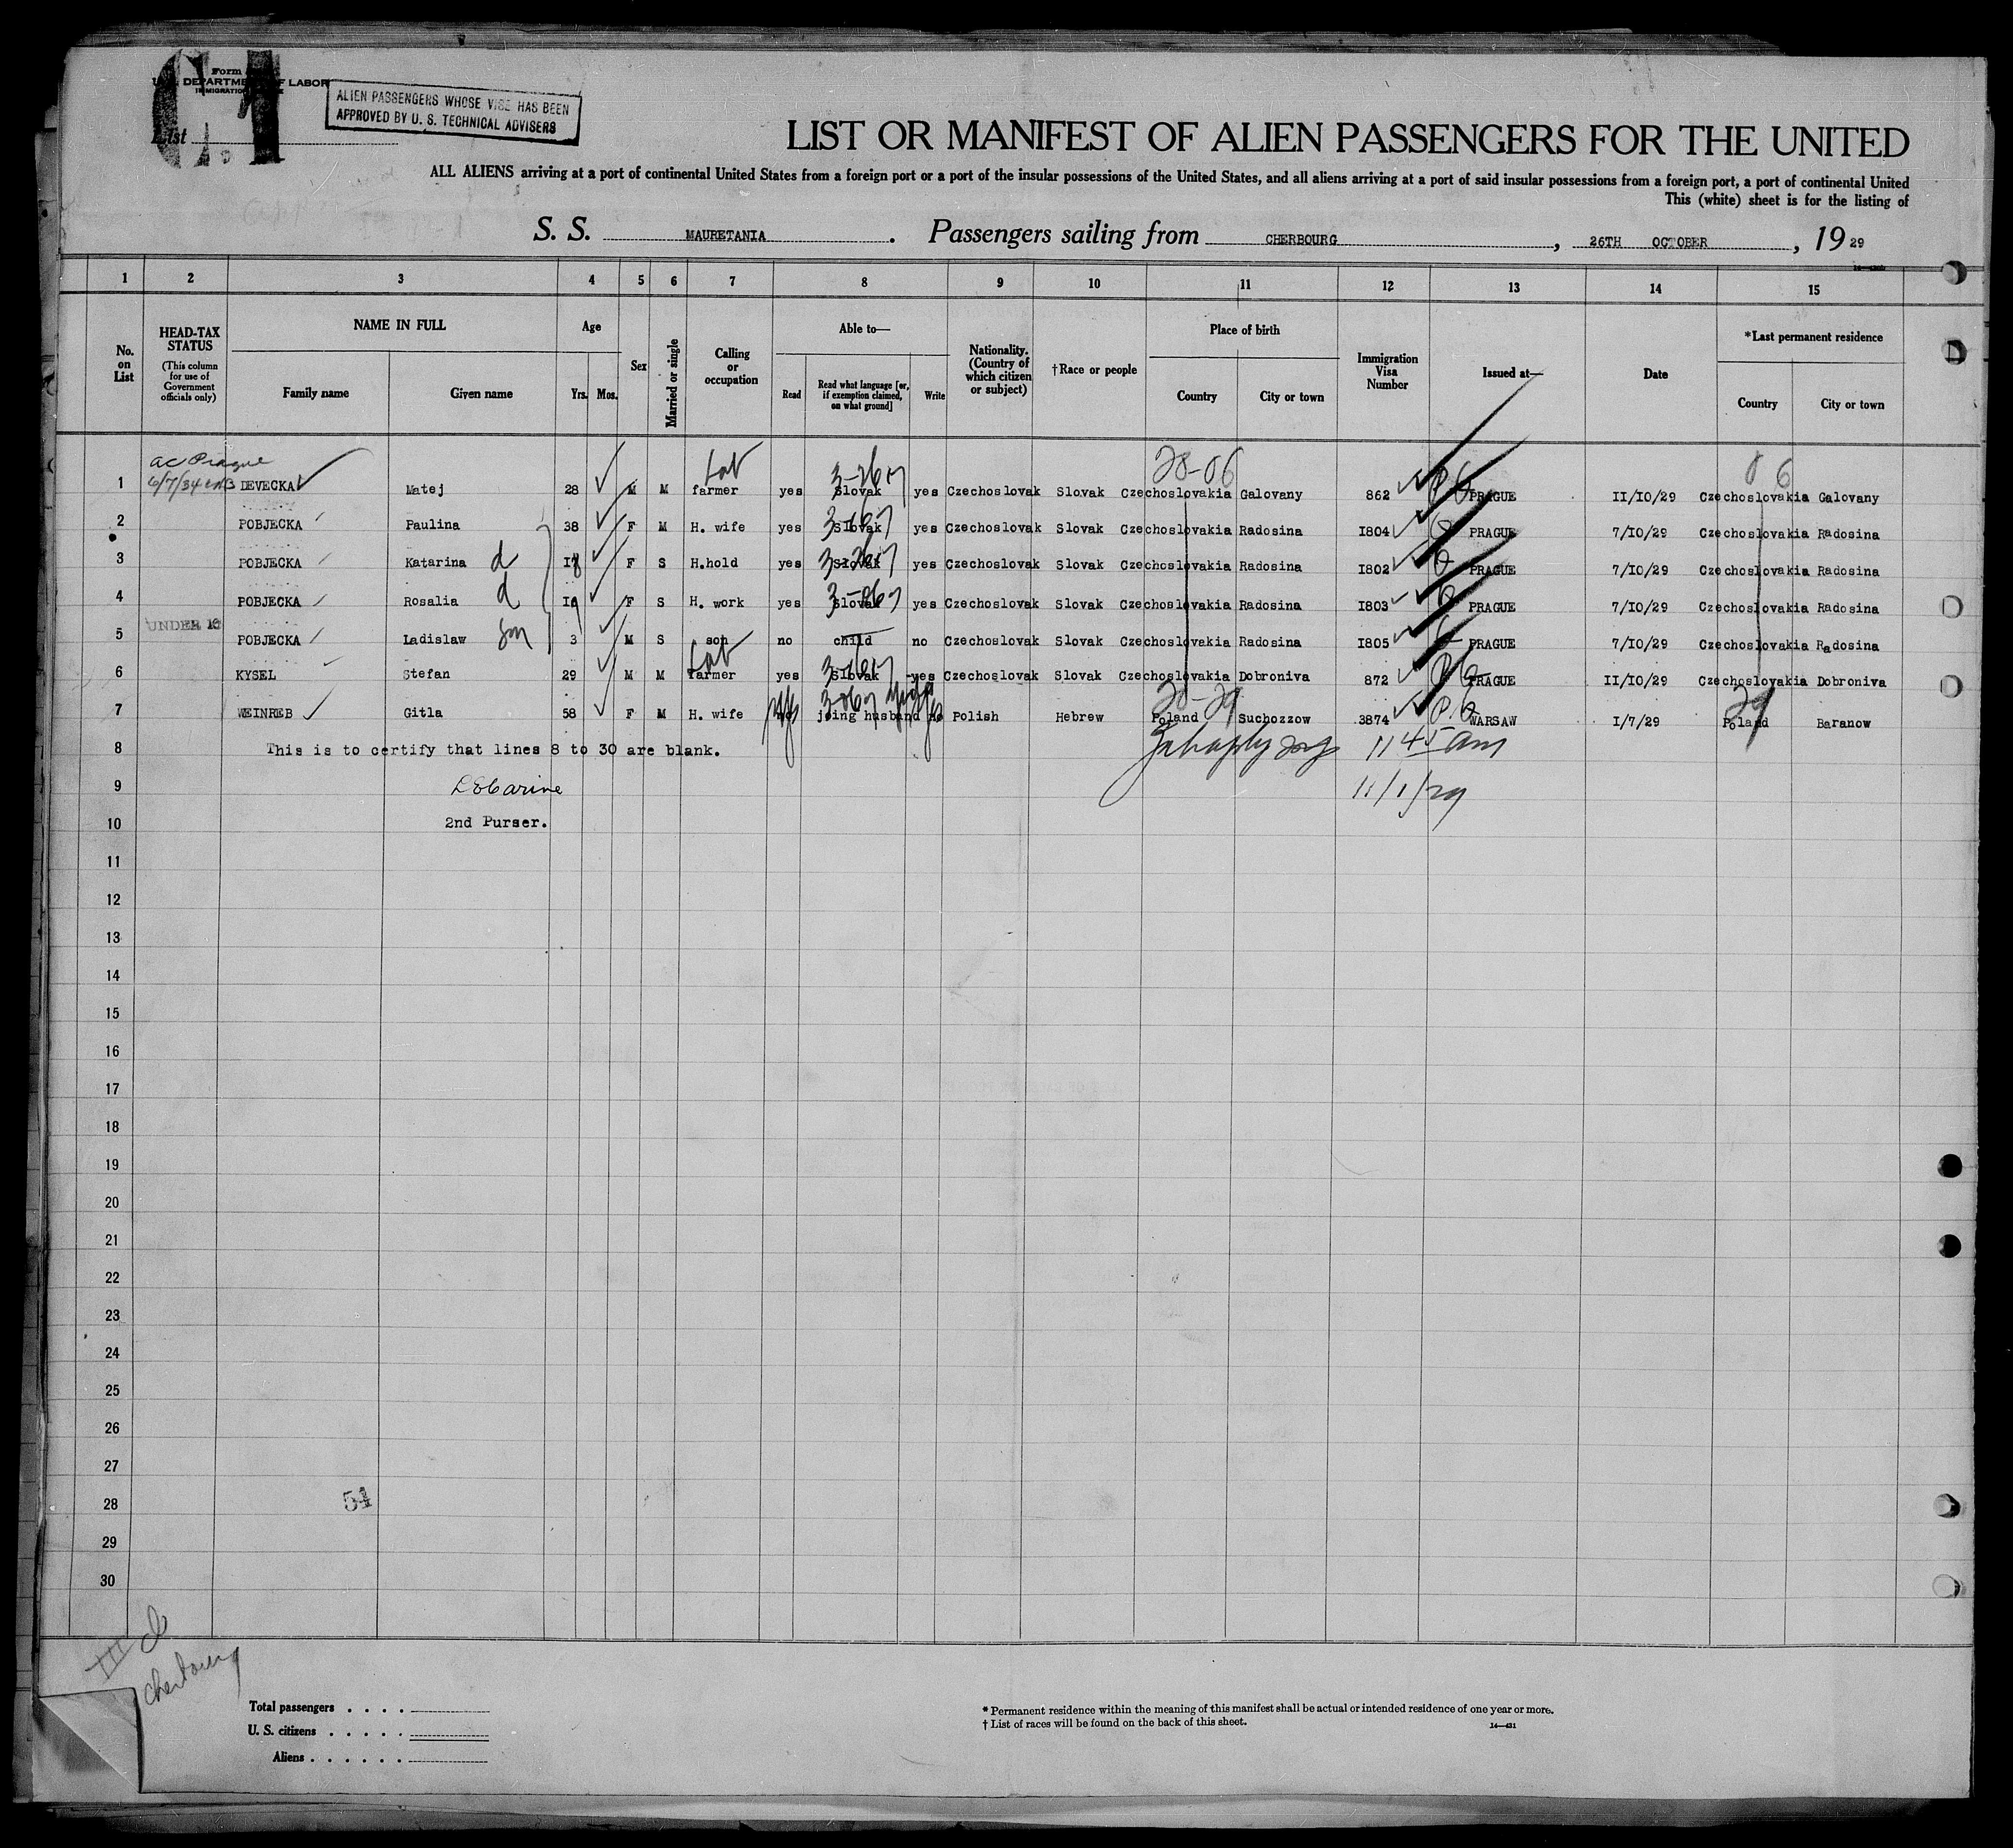 Form
U. S. DEPARTMENT OF LABOR
IMMIGRATION
List
ALIEN PASSENGERS WHOSE VISE HAS BEEN
APPROVED BY U. S. TECHNICAL ADVISERS
LIST OR MANIFEST OF ALIEN PASSENGERS FOR THE UNITED
ALL ALIENS arriving at a port of continental United States from a foreign port or a port of the insular possessions of the United States, and all aliens arriving at a port of said insular possessions from a foreign port, a port of continental United
This (white) sheet is for the listing of
S. S. MAURETANIA. Passengers sailing from CHERBOURG, 26TH OCTOBER, 1929
1 2 3 4 5 6 7 8 9 10 11 12 13 14 15
No. on List
HEAD-TAX STATUS
(This column for use of Government officials only)
NAME IN FULL
Family name Given name
Age
Yrs. Mos.
Sex
Married or single
Calling or occupation
Able to—
Read Read what language [or, if exemption claimed, on what ground] Write
Nationality. (Country of which citizen or subject)
†Race or people
Place of birth
Country City or town
Immigration Visa Number
Issued at—
Date
*Last permanent residence
Country City or town
ac Prague 28-06 06
1 6/7/34 DEVECKA Matej 28 M M farmer yes Slovak yes Czechoslovak Slovak Czechoslovakia Galovany 862 PRAGUE 11/10/29 Czechoslovakia Galovany
2 POBJECKA Paulina 38 F M H. wife yes Slovak yes Czechoslovak Slovak Czechoslovakia Radosina 1804 PRAGUE 7/10/29 Czechoslovakia Radosina
3 POBJECKA Katarina d 18 F S H.hold yes Slovak yes Czechoslovak Slovak Czechoslovakia Radosina 1802 PRAGUE 7/10/29 Czechoslovakia Radosina
4 POBJECKA Rosalia d F S H. work yes Slovak yes Czechoslovak Slovak Czechoslovakia Radosina 1803 PRAGUE 7/10/29 Czechoslovakia Radosina
UNDER 16
5 POBJECKA Ladislaw son 3 M S son no child no Czechoslovak Slovak Czechoslovakia Radosina 1805 PRAGUE 7/10/29 Czechoslovakia Radosina
6 KYSEL Stefan 29 M M farmer yes Slovak yes Czechoslovak Slovak Czechoslovakia Dobroniva 872 PRAGUE 11/10/29 Czechoslovakia Dobroniva
28-29 29
7 WEINREB Gitla 58 F M H. wife joing husband Polish Hebrew Poland Suchozzow 3874 WARSAW 1/7/29 Poland Baranow
8 This is to certify that lines 8 to 30 are blank. 11 45 am
9 11/1/29
10 2nd Purser.
11
12
13
14
15
16
17
18
19
20
21
22
23
24
25
26
27
28 54
29
30
III cl
Cherbourg
Total passengers . . . .
U. S. citizens . . . . .
Aliens . . . . . .
* Permanent residence within the meaning of this manifest shall be actual or intended residence of one year or more.
† List of races will be found on the back of this sheet.
14—431